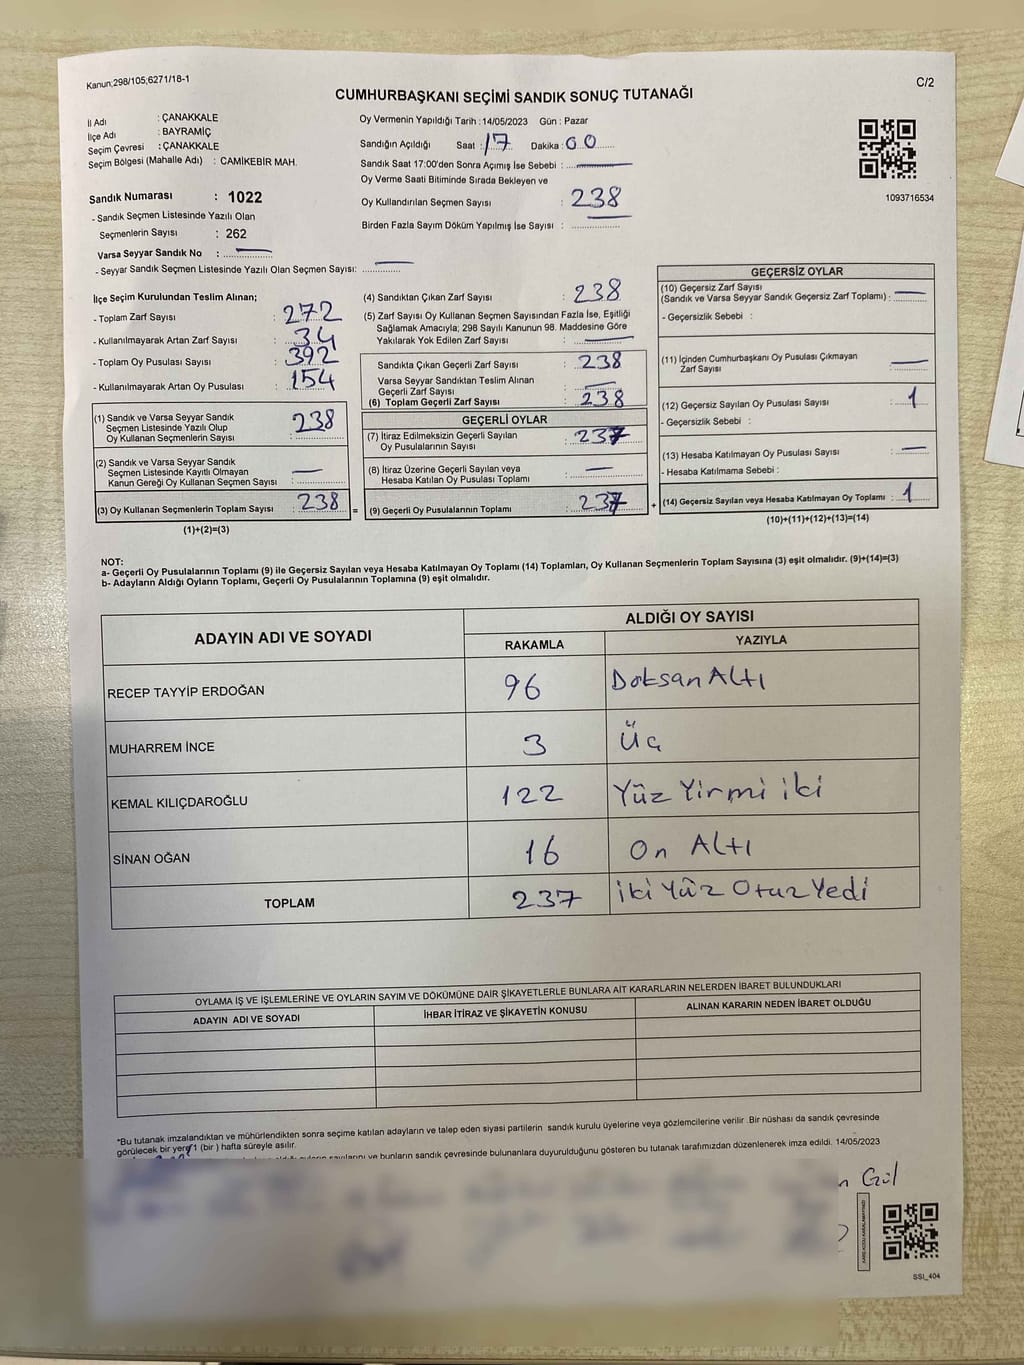 Kanun;298/105;6271/18-1
C/2
CUMHURBAŞKANI SEÇİMİ SANDIK SONUÇ TUTANAĞI
İl Adı : ÇANAKKALE
İlçe Adı : BAYRAMİÇ
Seçim Çevresi : ÇANAKKALE
Seçim Bölgesi (Mahalle Adı) : CAMİKEBİR MAH.
Sandık Numarası : 1022
- Sandık Seçmen Listesinde Yazılı Olan
Seçmenlerin Sayısı : 262
Varsa Seyyar Sandık No :
- Seyyar Sandık Seçmen Listesinde Yazılı Olan Seçmen Sayısı:
Oy Vermenin Yapıldığı Tarih : 14/05/2023 Gün : Pazar
Sandığın Açıldığı Saat : 17 Dakika : 00
Sandık Saat 17:00'den Sonra Açımış İse Sebebi :
Oy Verme Saati Bitiminde Sırada Bekleyen ve
Oy Kullandırılan Seçmen Sayısı : 238
Birden Fazla Sayım Döküm Yapılmış İse Sayısı :
1093716534
İlçe Seçim Kurulundan Teslim Alınan;
- Toplam Zarf Sayısı : 272
- Kullanılmayarak Artan Zarf Sayısı : 34
- Toplam Oy Pusulası Sayısı : 392
- Kullanılmayarak Artan Oy Pusulası : 154
(1) Sandık ve Varsa Seyyar Sandık
Seçmen Listesinde Yazılı Olup
Oy Kullanan Seçmenlerin Sayısı : 238
(2) Sandık ve Varsa Seyyar Sandık
Seçmen Listesinde Kayıtlı Olmayan
Kanun Gereği Oy Kullanan Seçmen Sayısı :
(3) Oy Kullanan Seçmenlerin Toplam Sayısı : 238 =
(1)+(2)=(3)
(4) Sandıktan Çıkan Zarf Sayısı : 238
(5) Zarf Sayısı Oy Kullanan Seçmen Sayısından Fazla İse, Eşitliği
Sağlamak Amacıyla; 298 Sayılı Kanunun 98. Maddesine Göre
Yakılarak Yok Edilen Zarf Sayısı :
Sandıkta Çıkan Geçerli Zarf Sayısı : 238
Varsa Seyyar Sandıktan Teslim Alınan
Geçerli Zarf Sayısı :
(6) Toplam Geçerli Zarf Sayısı : 238
GEÇERLİ OYLAR
(7) İtiraz Edilmeksizin Geçerli Sayılan
Oy Pusulalarının Sayısı : 237
(8) İtiraz Üzerine Geçerli Sayılan veya
Hesaba Katılan Oy Pusulası Toplamı :
(9) Geçerli Oy Pusulalarının Toplamı : 237 +
GEÇERSİZ OYLAR
(10) Geçersiz Zarf Sayısı
(Sandık ve Varsa Seyyar Sandık Geçersiz Zarf Toplamı) :
- Geçersizlik Sebebi :
(11) İçinden Cumhurbaşkanı Oy Pusulası Çıkmayan
Zarf Sayısı :
(12) Geçersiz Sayılan Oy Pusulası Sayısı : 1
- Geçersizlik Sebebi :
(13) Hesaba Katılmayan Oy Pusulası Sayısı :
- Hesaba Katılmama Sebebi :
(14) Geçersiz Sayılan veya Hesaba Katılmayan Oy Toplamı : 1
(10)+(11)+(12)+(13)=(14)
NOT:
a- Geçerli Oy Pusulalarının Toplamı (9) ile Geçersiz Sayılan veya Hesaba Katılmayan Oy Toplamı (14) Toplamları, Oy Kullanan Seçmenlerin Toplam Sayısına (3) eşit olmalıdır. (9)+(14)=(3)
b- Adayların Aldığı Oyların Toplamı, Geçerli Oy Pusulalarının Toplamına (9) eşit olmalıdır.
ADAYIN ADI VE SOYADI
ALDIĞI OY SAYISI
RAKAMLA YAZIYLA
RECEP TAYYİP ERDOĞAN 96 Doksan Altı
MUHARREM İNCE 3 Üç
KEMAL KILIÇDAROĞLU 122 Yüz Yirmi iki
SİNAN OĞAN 16 On Altı
TOPLAM 237 iki Yüz Otuz Yedi
OYLAMA İŞ VE İŞLEMLERİNE VE OYLARIN SAYIM VE DÖKÜMÜNE DAİR ŞİKAYETLERLE BUNLARA AİT KARARLARIN NELERDEN İBARET BULUNDUKLARI
ADAYIN ADI VE SOYADI İHBAR İTİRAZ VE ŞİKAYETİN KONUSU ALINAN KARARIN NEDEN İBARET OLDUĞU
*Bu tutanak imzalandıktan ve mühürlendikten sonra seçime katılan adayların ve talep eden siyasi partilerin sandık kurulu üyelerine veya gözlemcilerine verilir .Bir nüshası da sandık çevresinde
görülecek bir yere 1 (bir ) hafta süreyle asılır.
ve bunların sandık çevresinde bulunanlara duyurulduğunu gösteren bu tutanak tarafımızdan düzenlenerek imza edildi. 14/05/2023
Gül
SSI_404